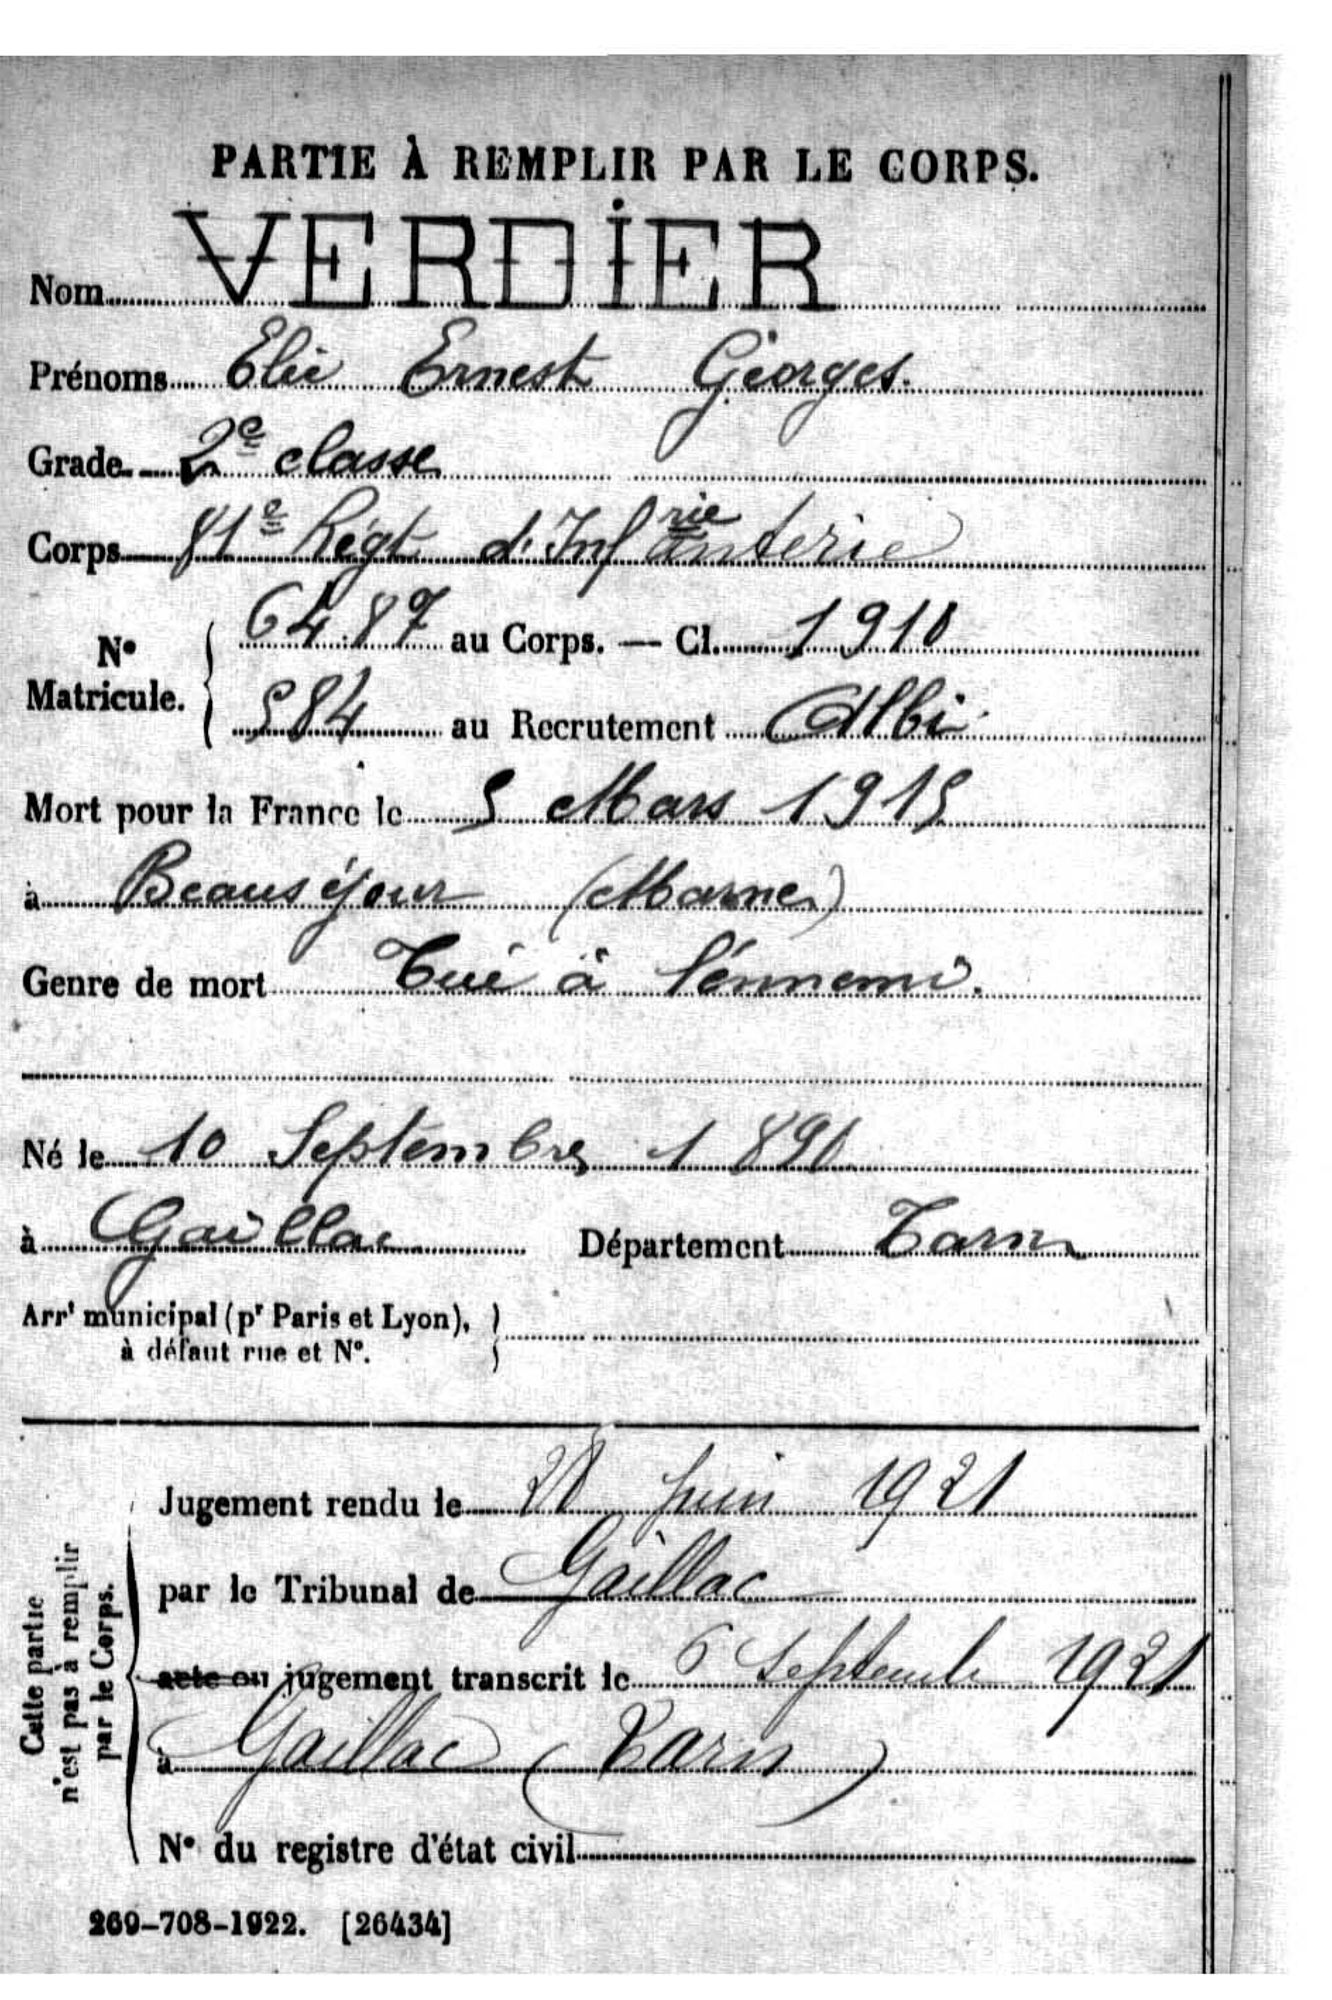 PARTIE À REMPLIR PAR LE CORPS.
Nom VERDIER
Prénoms Elie Ernest Georges.
Grade 2e classe
Corps 81e Régt d'Infanterie
rie
No Matricule. 6487 au Corps. — Cl. 1910
584 au Recrutement Albi
Mort pour la France le 5 Mars 1915
à Beauséjour (Marne)
Genre de mort Tué à l'énnemi.
Né le 10 Septembre 1890
à Gaillac Département Tarn
Arrt municipal (pr Paris et Lyon),
à défaut rue et No.
Cette partie
n'est pas à remplir
par le Corps.
Jugement rendu le 28 juin 1921
par le Tribunal de Gaillac
acte ou jugement transcrit le 6 Septembre 1921
à Gaillac (Tarn)
No du registre d'état civil
269-708-1922. [26434]